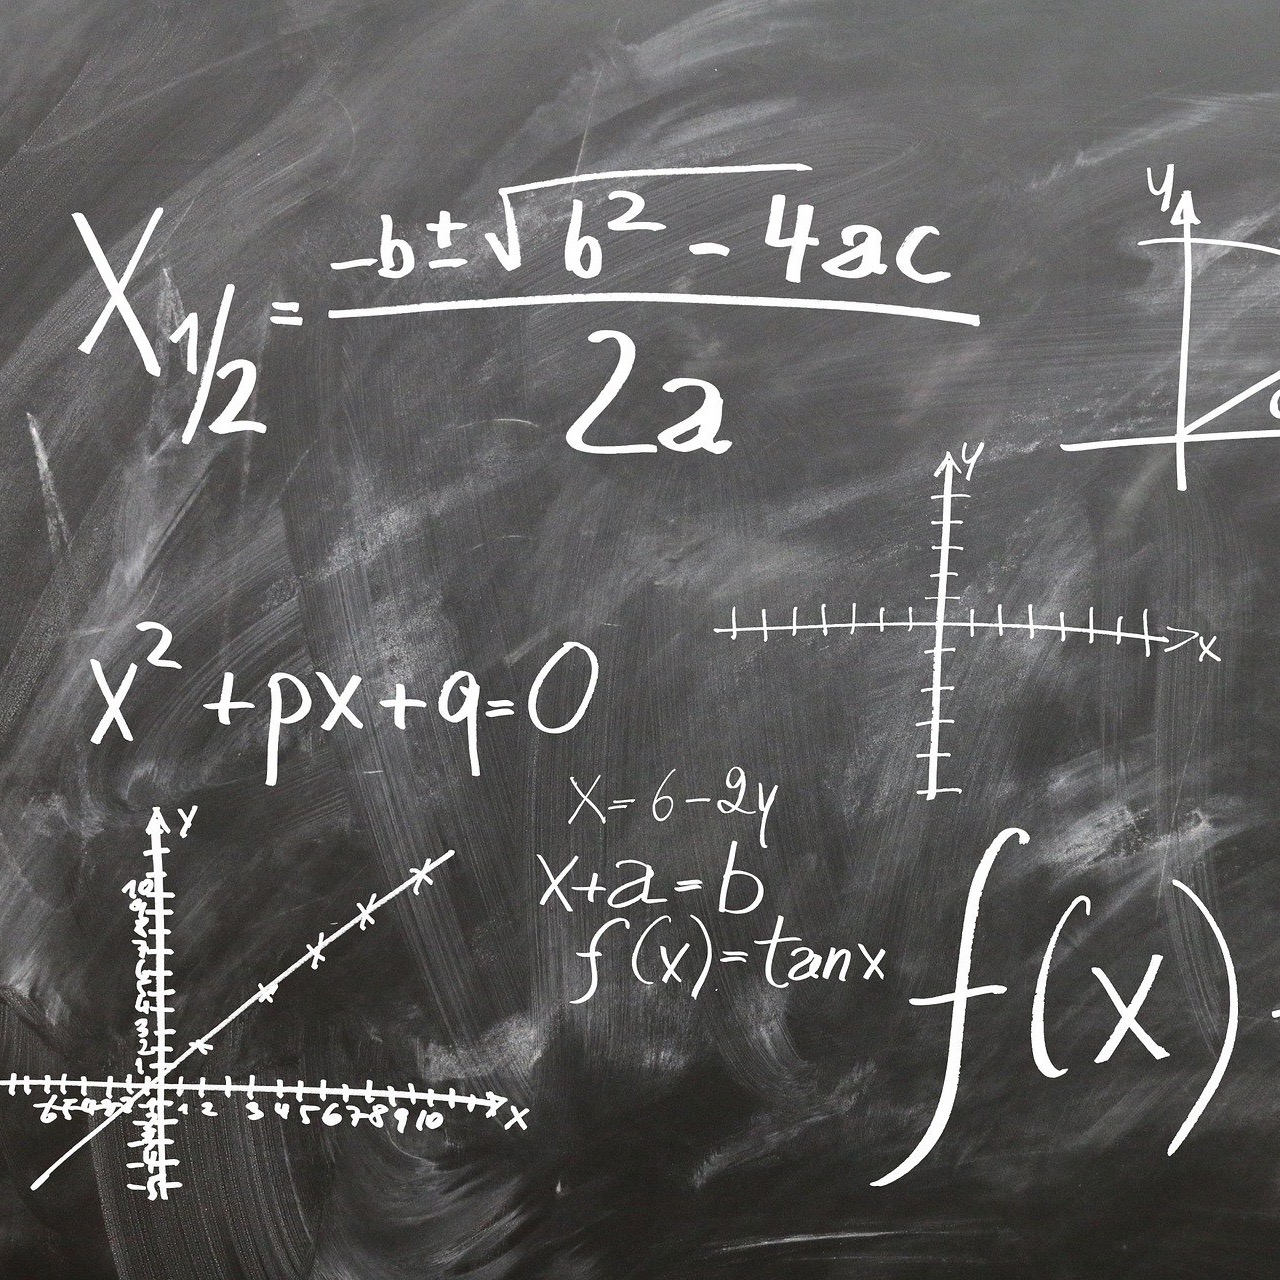 X1/2 = -b±√b² - 4ac / 2a
y
y
x
x² + px + q = 0
x = 6 - 2y
x + a = b
f(x) = tanx
f(x)
y
10
3
2
1
6 5 4 3 2 1 2 3 4 5 6 7 8 9 10
x